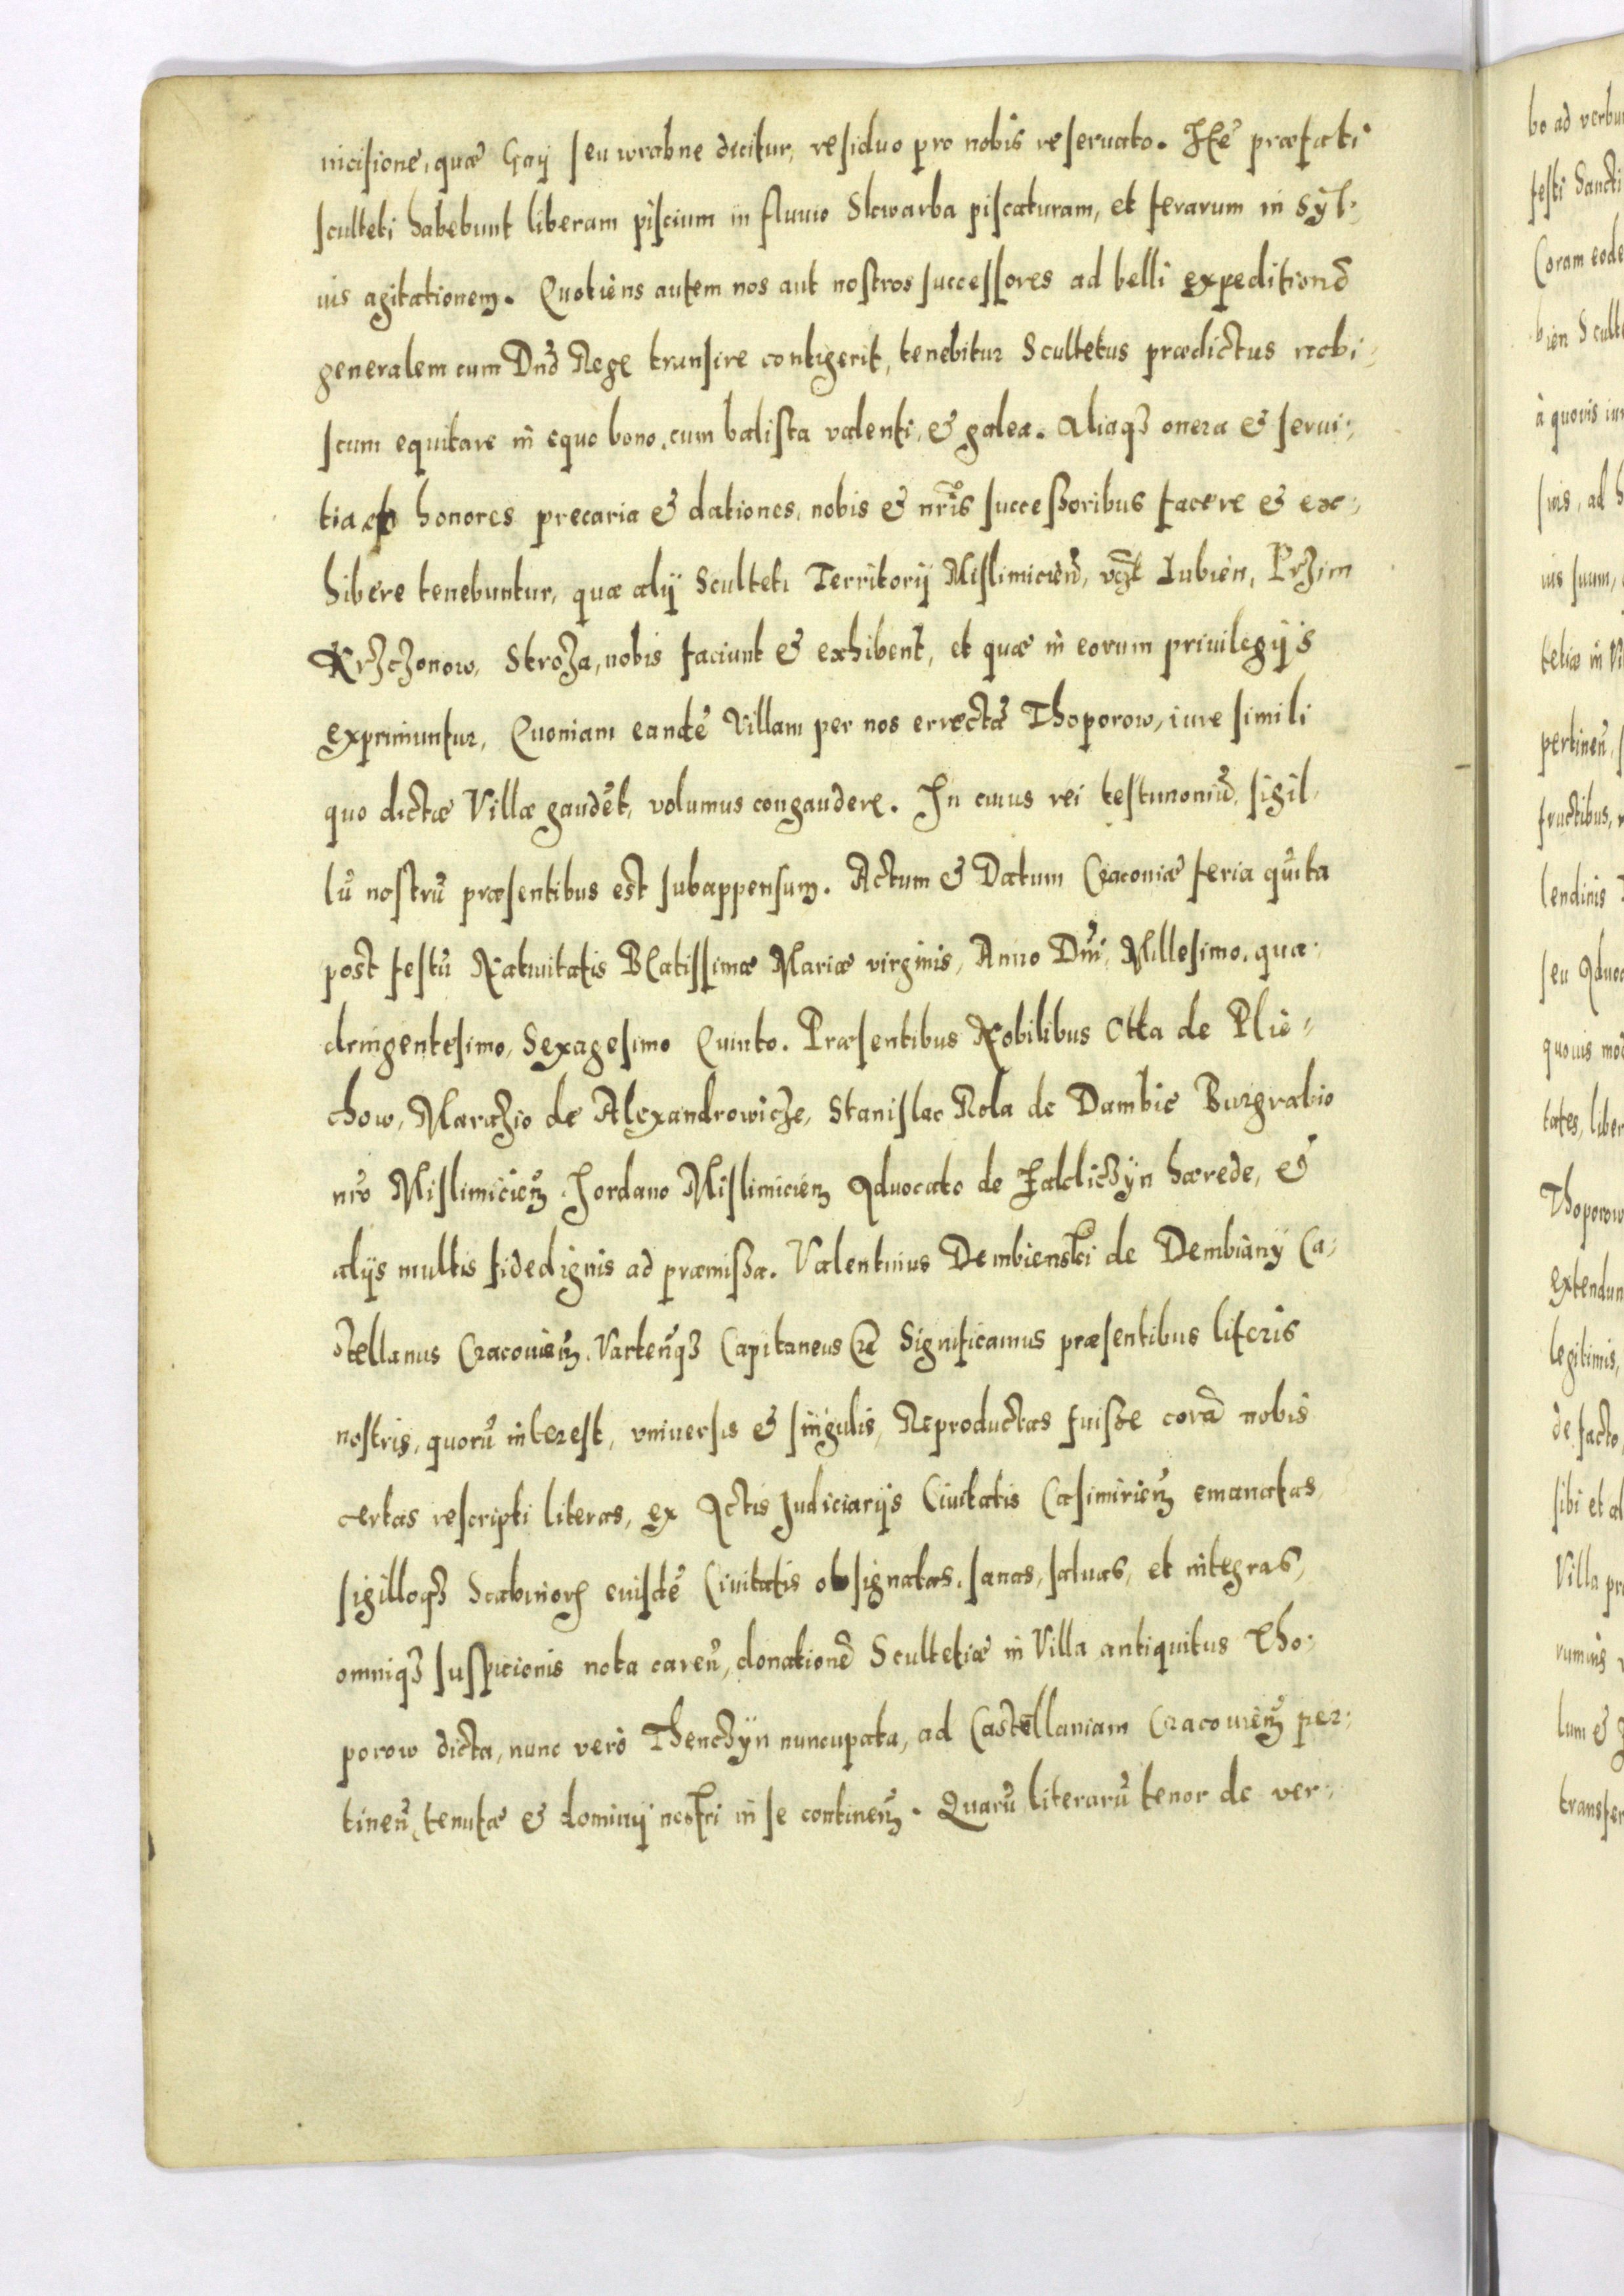 incisione, quæ Gaÿ seu wrabne dicitur, residuo pro nobis reseruato. Itẽ præfati
sculteti habebunt liberam piscium in fluuio Skwarba piscaturam, et ferarum in syl-
uis agitationem. Quotiens autem nos aut nostros successores ad belli expeditionẽ
generalem cum Dnõ Rege transire contigerit, tenebitur Scultetus prædictus nobi-
scum equitare in equo bono, cum balista valenti, & galea. Aliaqȝ onera & serui-
tia honores precaria & dationes, nobis & nr̃is successoribus facere & ex-
hibere tenebuntur, quæ alÿ Sculteti Territorÿ Mislimicien̄, vcȝt Lubien, Prȝim
Krȝcȝonow, Stroȝa, nobis faciunt & exhibent, et quæ in eorum priuilegÿs
exprimuntur, Quoniam eandẽ Villam per nos errectã Thoporow, iure simili
quo dictæ Villæ gaudẽt, volumus congaudere. In cuius rei testimoniũ, sigil-
lũ nostrũ præsentibus est subappensum. Actum & Datum Cracoviæ feria quĩta
post festũ Natiuitatis Beatissimæ Mariæ virginis, Anno Dñi, Millesimo, qua-
dringentesimo, Sexagesimo Quinto. Præsentibus Nobilibus Otta de Plie-
chow, Maraȝio de Alexandrowicȝe, Stanislao Rola de Dambie Burgrabio
nr̃o Mislimicien̄, Jordano Mislimicien̄ Aduocato de Falelicȝyn hærede, &
alÿs multis fidedignis ad præmissa. Valentinus Dembienski de Dembiany Ca-
stellanus Cracouien̄. Varten̄qȝ Capitaneus &c Significamus præsentibus literis
nostris, quorũ interest, vniuersis & singulis, Reproductas fuisse corã nobis
certas rescripti literas, ex Actis Judiciarÿs Ciuitatis Casimirien̄ emanatas,
sigilloqȝ Scabinorꝫ eiusdẽ Ciuitatis obsignatas, sanas, saluas, et integras,
omniqȝ suspicionis nota caren̄, donationẽ Scultetiæ in Villa antiquitus Tho-
porow dicta, nunc verò Thencȝyn nuncupata, ad Castellaniam Cracouien̄ per-
tinen̄, tenutæ & dominÿ nostri in se continen̄. Quarũ literarũ tenor de ver-